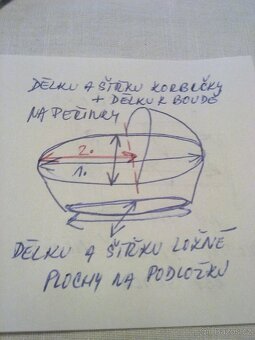 DÉLKU A ŠÍŘKU KORBIČKY
+ DÉLKU K BOUDĚ
NA PEŘINKY
2.
1.
DÉLKU A ŠÍŘKU LOŽNÉ
PLOCHY NA PODLOŽKU